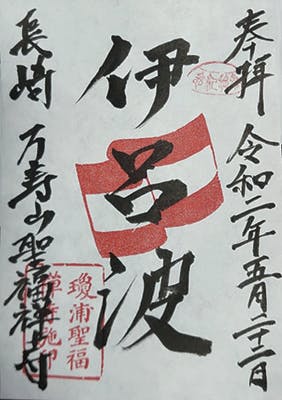 奉拝
令和二年五月二十二日
伊呂波
長崎 万寿山聖福禅寺
瓊浦聖福
禪寺施印